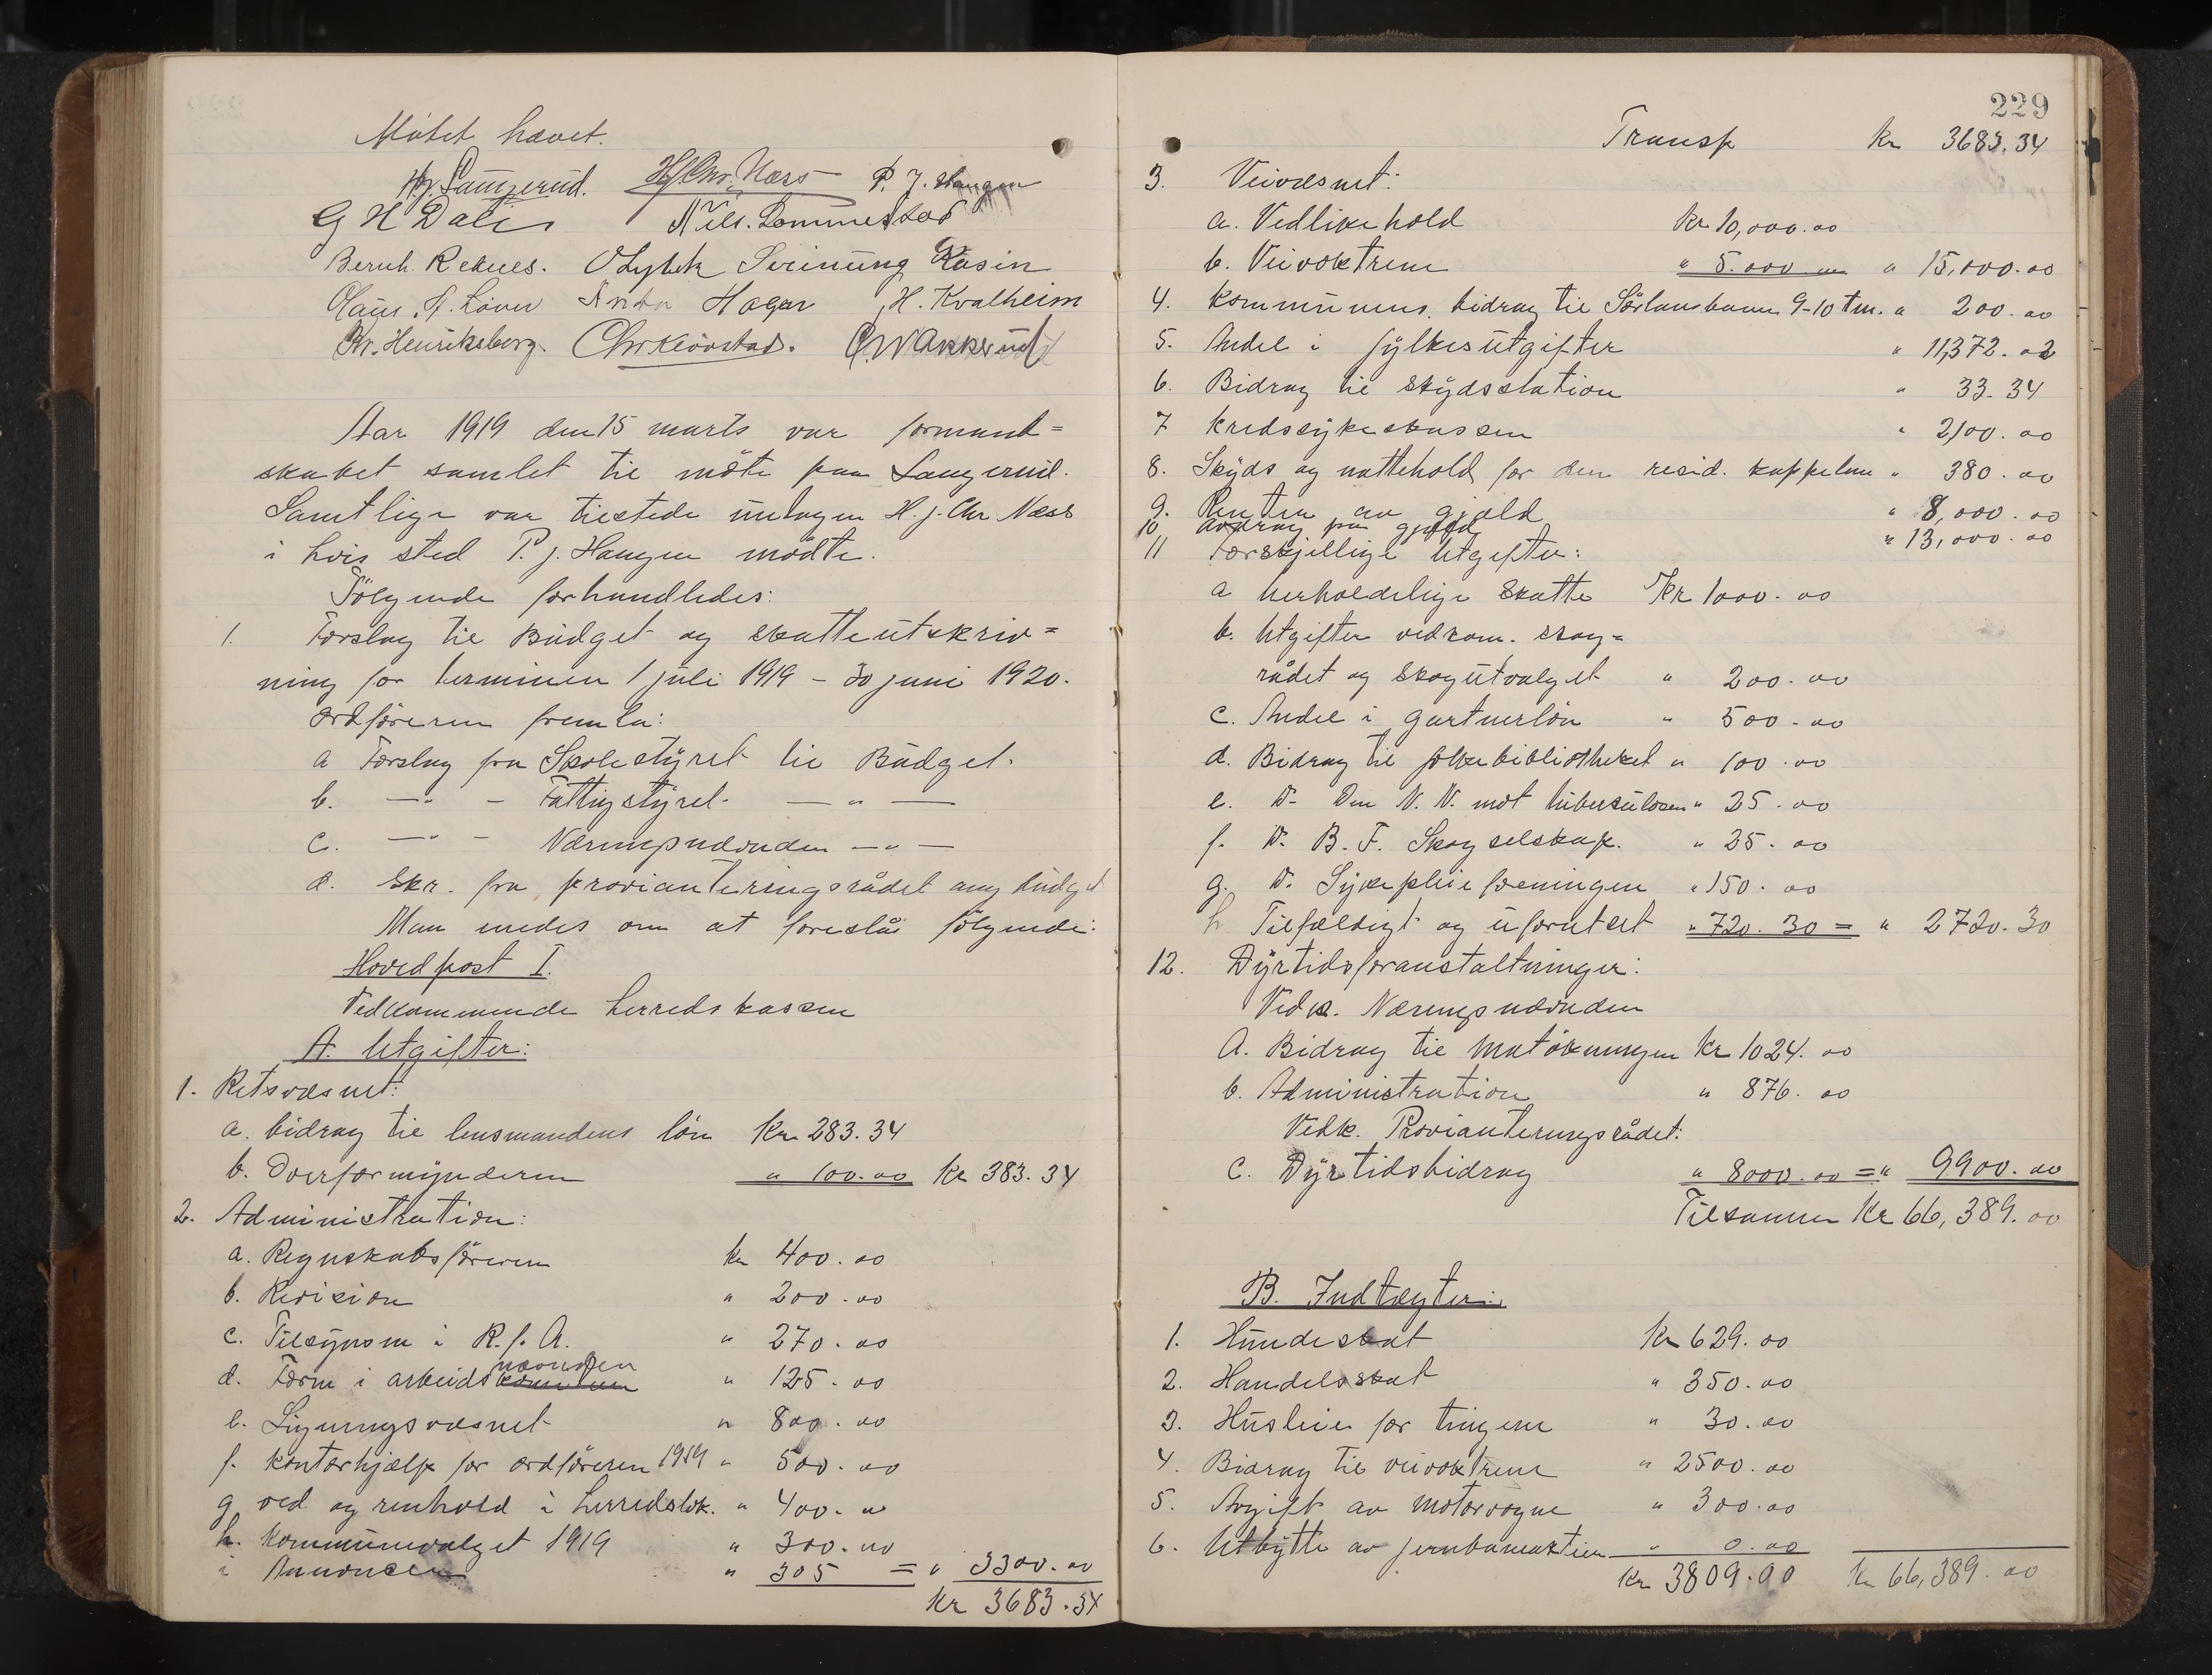 Møtet hævet.
Hj. Langerud. H. J. Chr. Næss P. J. Haugen
G H Dali Nils. Lommestad
Bernh. Reknes. O Lybek Sveinung Kasin
H. Kvalheim
Kr. Henriksberg. Chr Kløvstad. C. W Akkerud
Aar 1919 den 15 marts var formand=
skabet samlet til møte paa Langerud.
Samtlige var tilstede undtagen H. J. Chr. Næss
i hvis sted P. J. Haugen mødte.
Følgende forhandledes:
1. Forslag til Budget og skatteutskriv=
ning for terminen 1 juli 1919 – 30 juni 1920.
Ordføreren fremla:
a Forslag fra Skolestyret til Budget.
b. —"— Fattigstyret —"—
c. —"— Næringsnævnden —"—
d. Skr. fra provianteringsrådet ang budget
Man enedes om at foreslå følgende:
Hovedpost I.
Vedkommende herredskassen
A. Utgifter:
1. Retsvæsnet:
a. bidrag til lensmandens løn Kr 283.34
b. Overformynderen " 100.00 Kr 383.34
2. Administration:
a. Regnskabsføreren kr 400.00
b. Revision " 200.00
c. Tilsynsm i R. f. A. " 270.00
d. Form i arbeidsnævnden " 125.00
e. Ligningsvæsnet " 800.00
f. Kontorhjælp for ordføreren 1919 " 500.00
g ved og renhold i herredslok. " 400.00
h. Kommunevalget 1919 " 300.00
i Annoncer " 305 = " 3300.00
Kr 3683.34
229
Transp kr 3683.34
3. Veivæsnet:
a. Vedlikehold Kr 10,000.00
b. Veivoktere " 5.000.00 " 15,000.00
4. Kommunens bidrag til Sørlandsbanen 9-10 tm. " 200.00
5. Andel i fylkesutgifter " 11,372.02
6. Bidrag til skydsstation " 33.34
7 Kredssykekassen " 2,100.00
8. Skyds og nattehold for den resid. kappelan " 380.00
9. Renter av gjæld " 8,000.00
10 avdrag på gjæld " 13,000.00
11 Forskjellige utgifter:
a uerholdelige skatte Kr 1000.00
b. Utgifter vedkom. skog=
rådet og skogutvalget " 200.00
c. Andel i gartnerløn " 500.00
d. Bidrag til folkebibliotheket " 100.00
e. D- Den N. N. mot tuberculosen " 25.00
f. D. B. F. Skogselskap. " 25.00
g. D. Sykepleieforeningen " 150.00
h Tilfældigt og uforutset " 720.30 = " 2720.30
12. Dyrtidsforanstaltninger:
Vedk. Næringsnævnden
a. Bidrag til matøkningen Kr 1024.00
b. Administration " 876.00
Vedk. Provianteringsrådet:
c. Dyrtidsbidrag " 8000.00 = " 9900.00
Tilsammen Kr 66,389.00
B. Indtægter:
1. Hundeskat Kr 629.00
2. Handelsskat " 350.00
3. Husleie for tingene " 30.00
4. Bidrag til veivoktere " 2500.00
5. Avgift av motorvogne " 300.00
6. Utbytte av jernbaneaktier " 0.00
Kr 3809.00 Kr 66,389.00